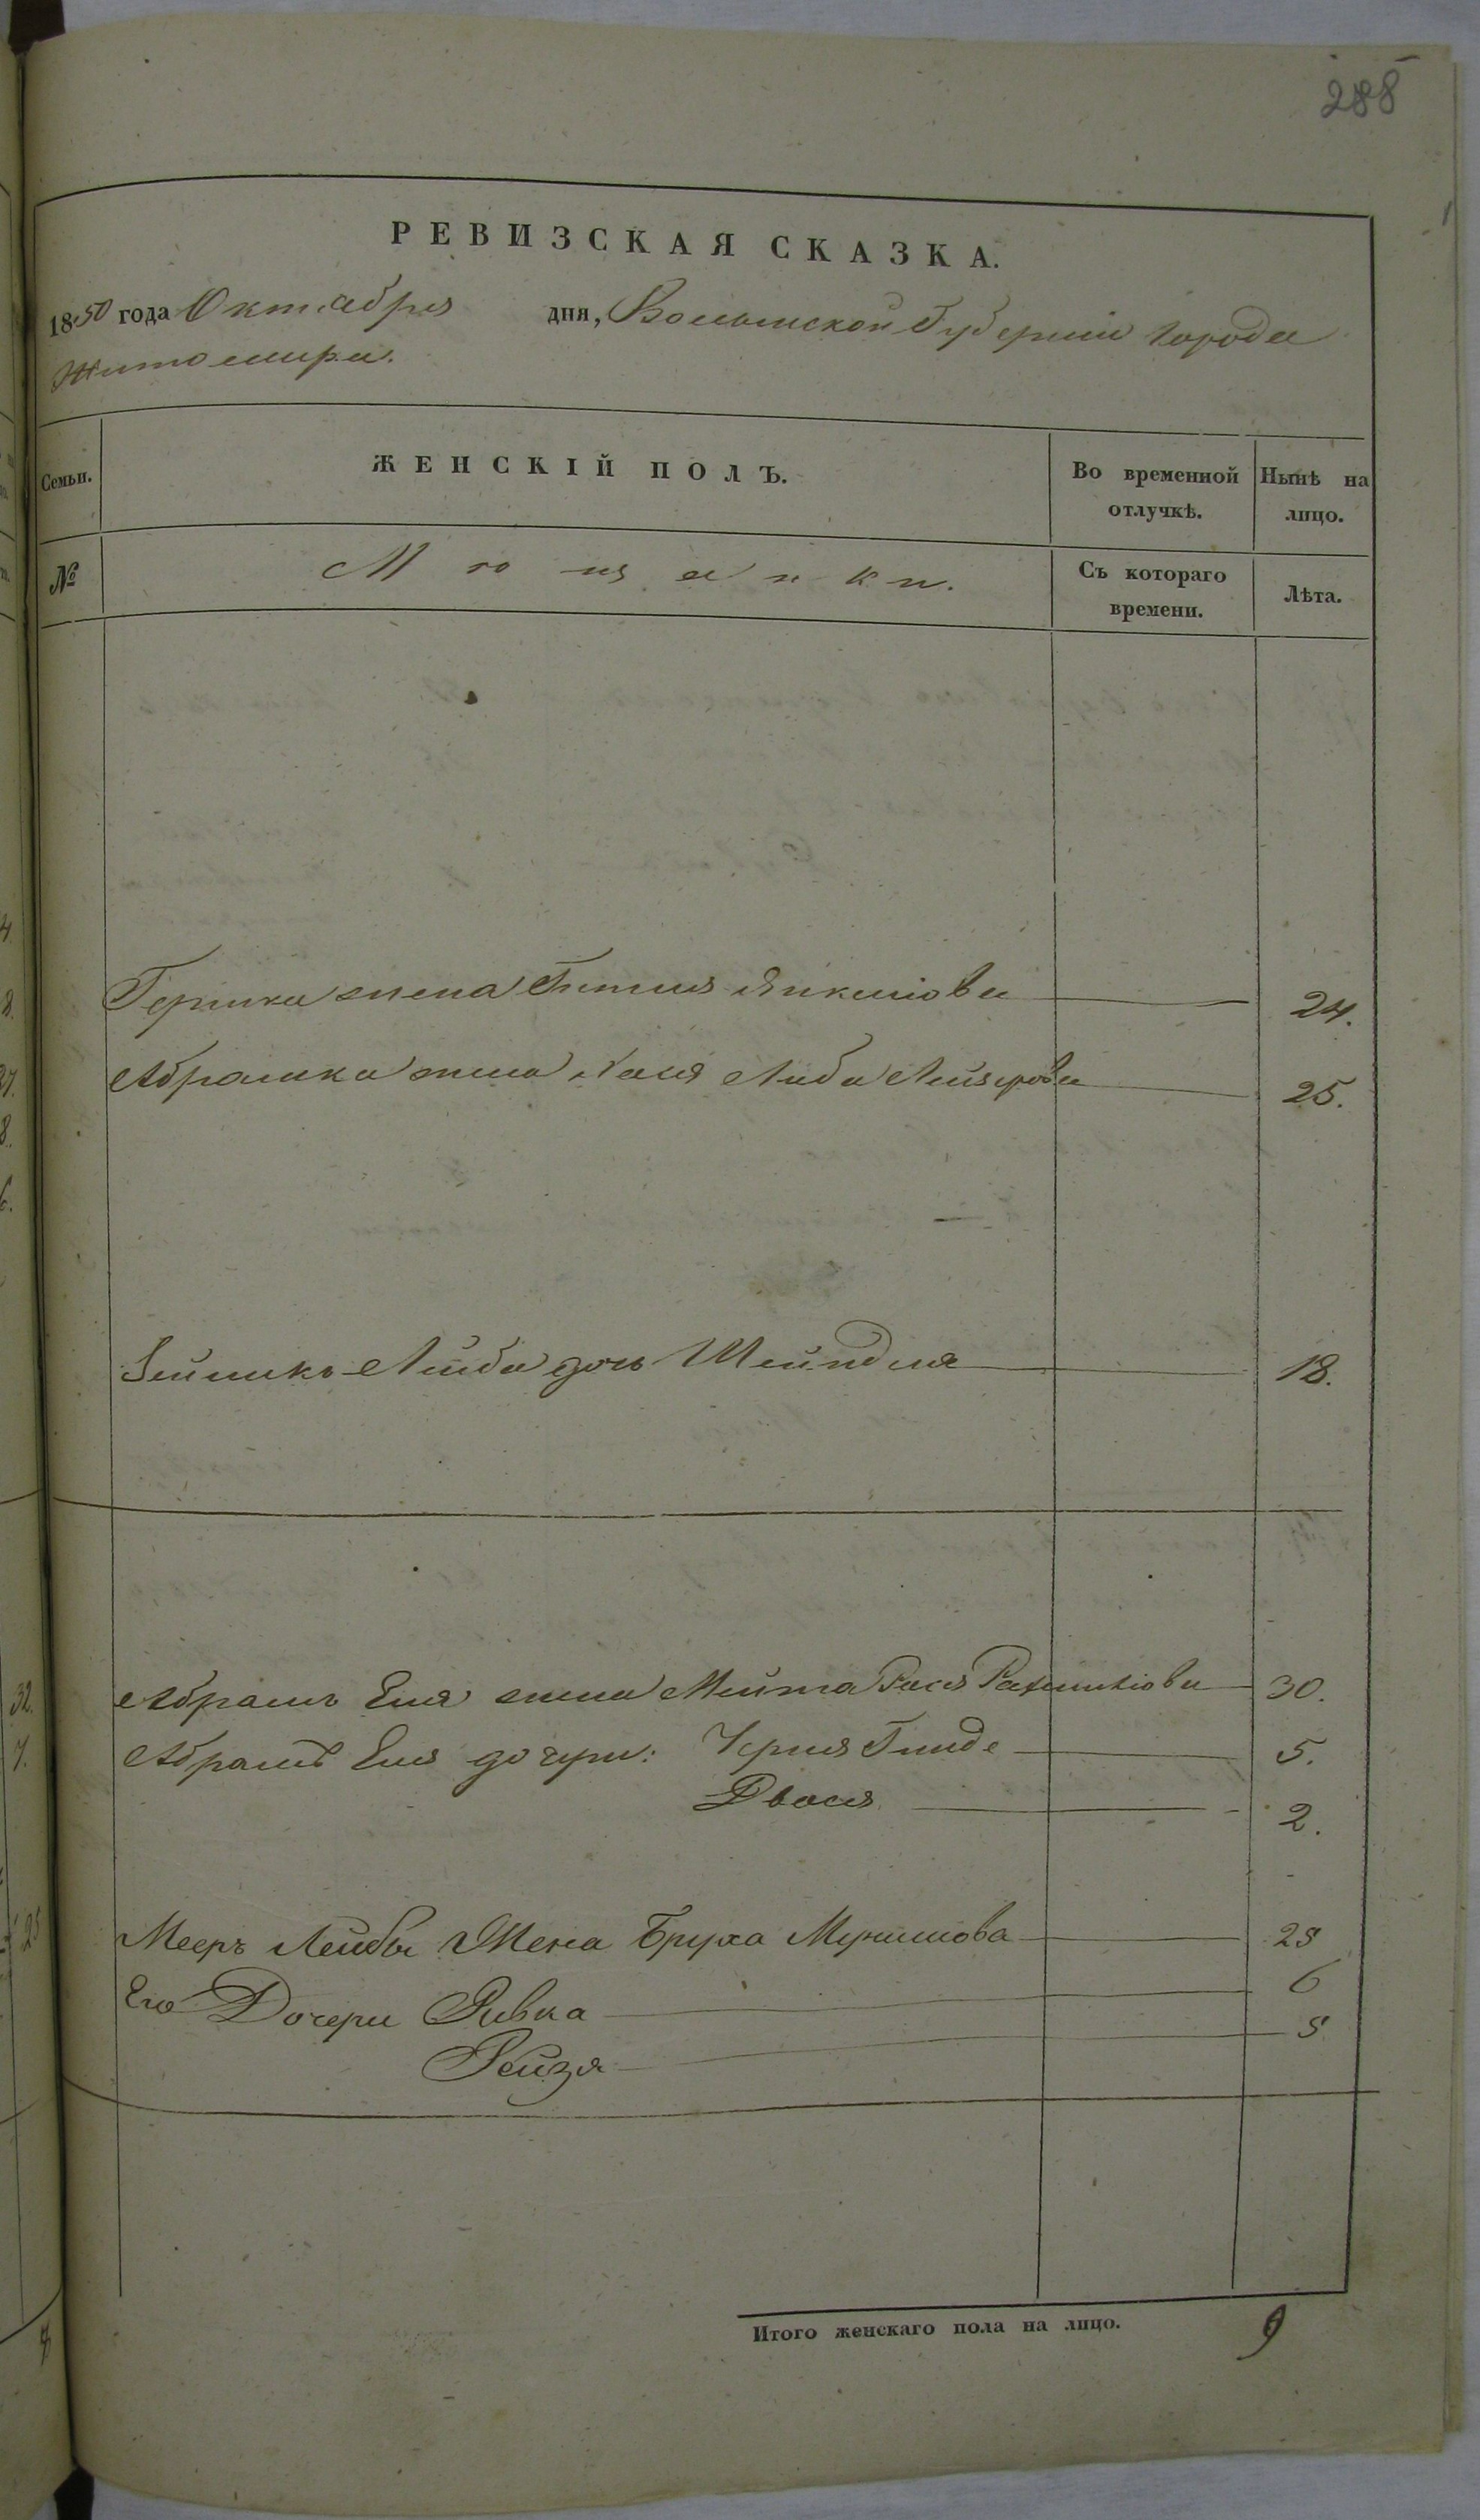 288
РЕВИЗСКАЯ СКАЗКА.
1850 года Октября дня, Волынской Губерніи города
Житомира.
Семьи.
ЖЕНСКІЙ ПОЛЪ.
Во временной отлучкѣ.
Нынѣ на лицо.
№
Мещанки.
Съ котораго времени.
Лѣта.
Гершка жена Гитля Янкеліова 24.
Абрамка жена Хая Либа Лейзерова 25.
Лейба дочь Шейндля 18.
Абрамъ Еля жена Мейта Рахмиліова 30.
Абрамъ Еля дочери: Черня Гинде 5.
Двося 2.
Мееръ Лейбы Жена Бруха Мунишова
Его Дочери Ривка 6
Рейзя
Итого женскаго пола на лицо. 9